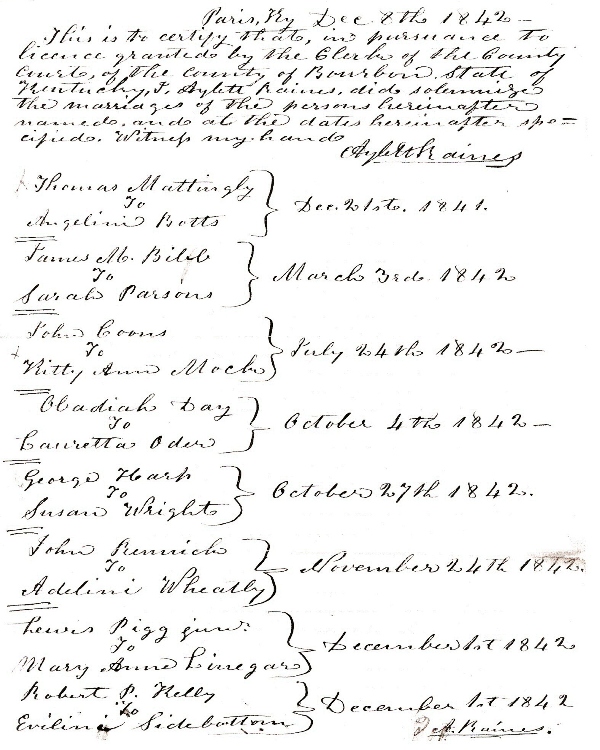 Paris, Ky Dec 8th 1842 —
This is to certify that, in pursuance to
licence granted by the Clerk of the County
Court, of the county of Bourbon, State of
Kentucky, I, Aylett Raines, did solemnize
the marriages of the persons hereinafter
named, and at the dates hereinafter spe=
cified. Witness my hand
Aylett Raines
Thomas Mattingly
To
Angelini Botts
Dec. 21st. 1841.
James M. Bibb
To
Sarah Parsons
March 3rd 1842
John Coons
To
Kitty Ann Mock
July 24th 1842 —
Obadiah Day
To
Lauretta Oder
October 4th 1842 —
George Harp
To
Susan Wright
October 27th 1842.
John Rennick
To
Adelini Wheatly
November 24th 1842.
Lewis Pigg junr.
To
Mary Anne Linegar
December 1st 1842
Robert P. Kelly
To
Evilini Sidebottom
December 1st 1842
A. Raines.